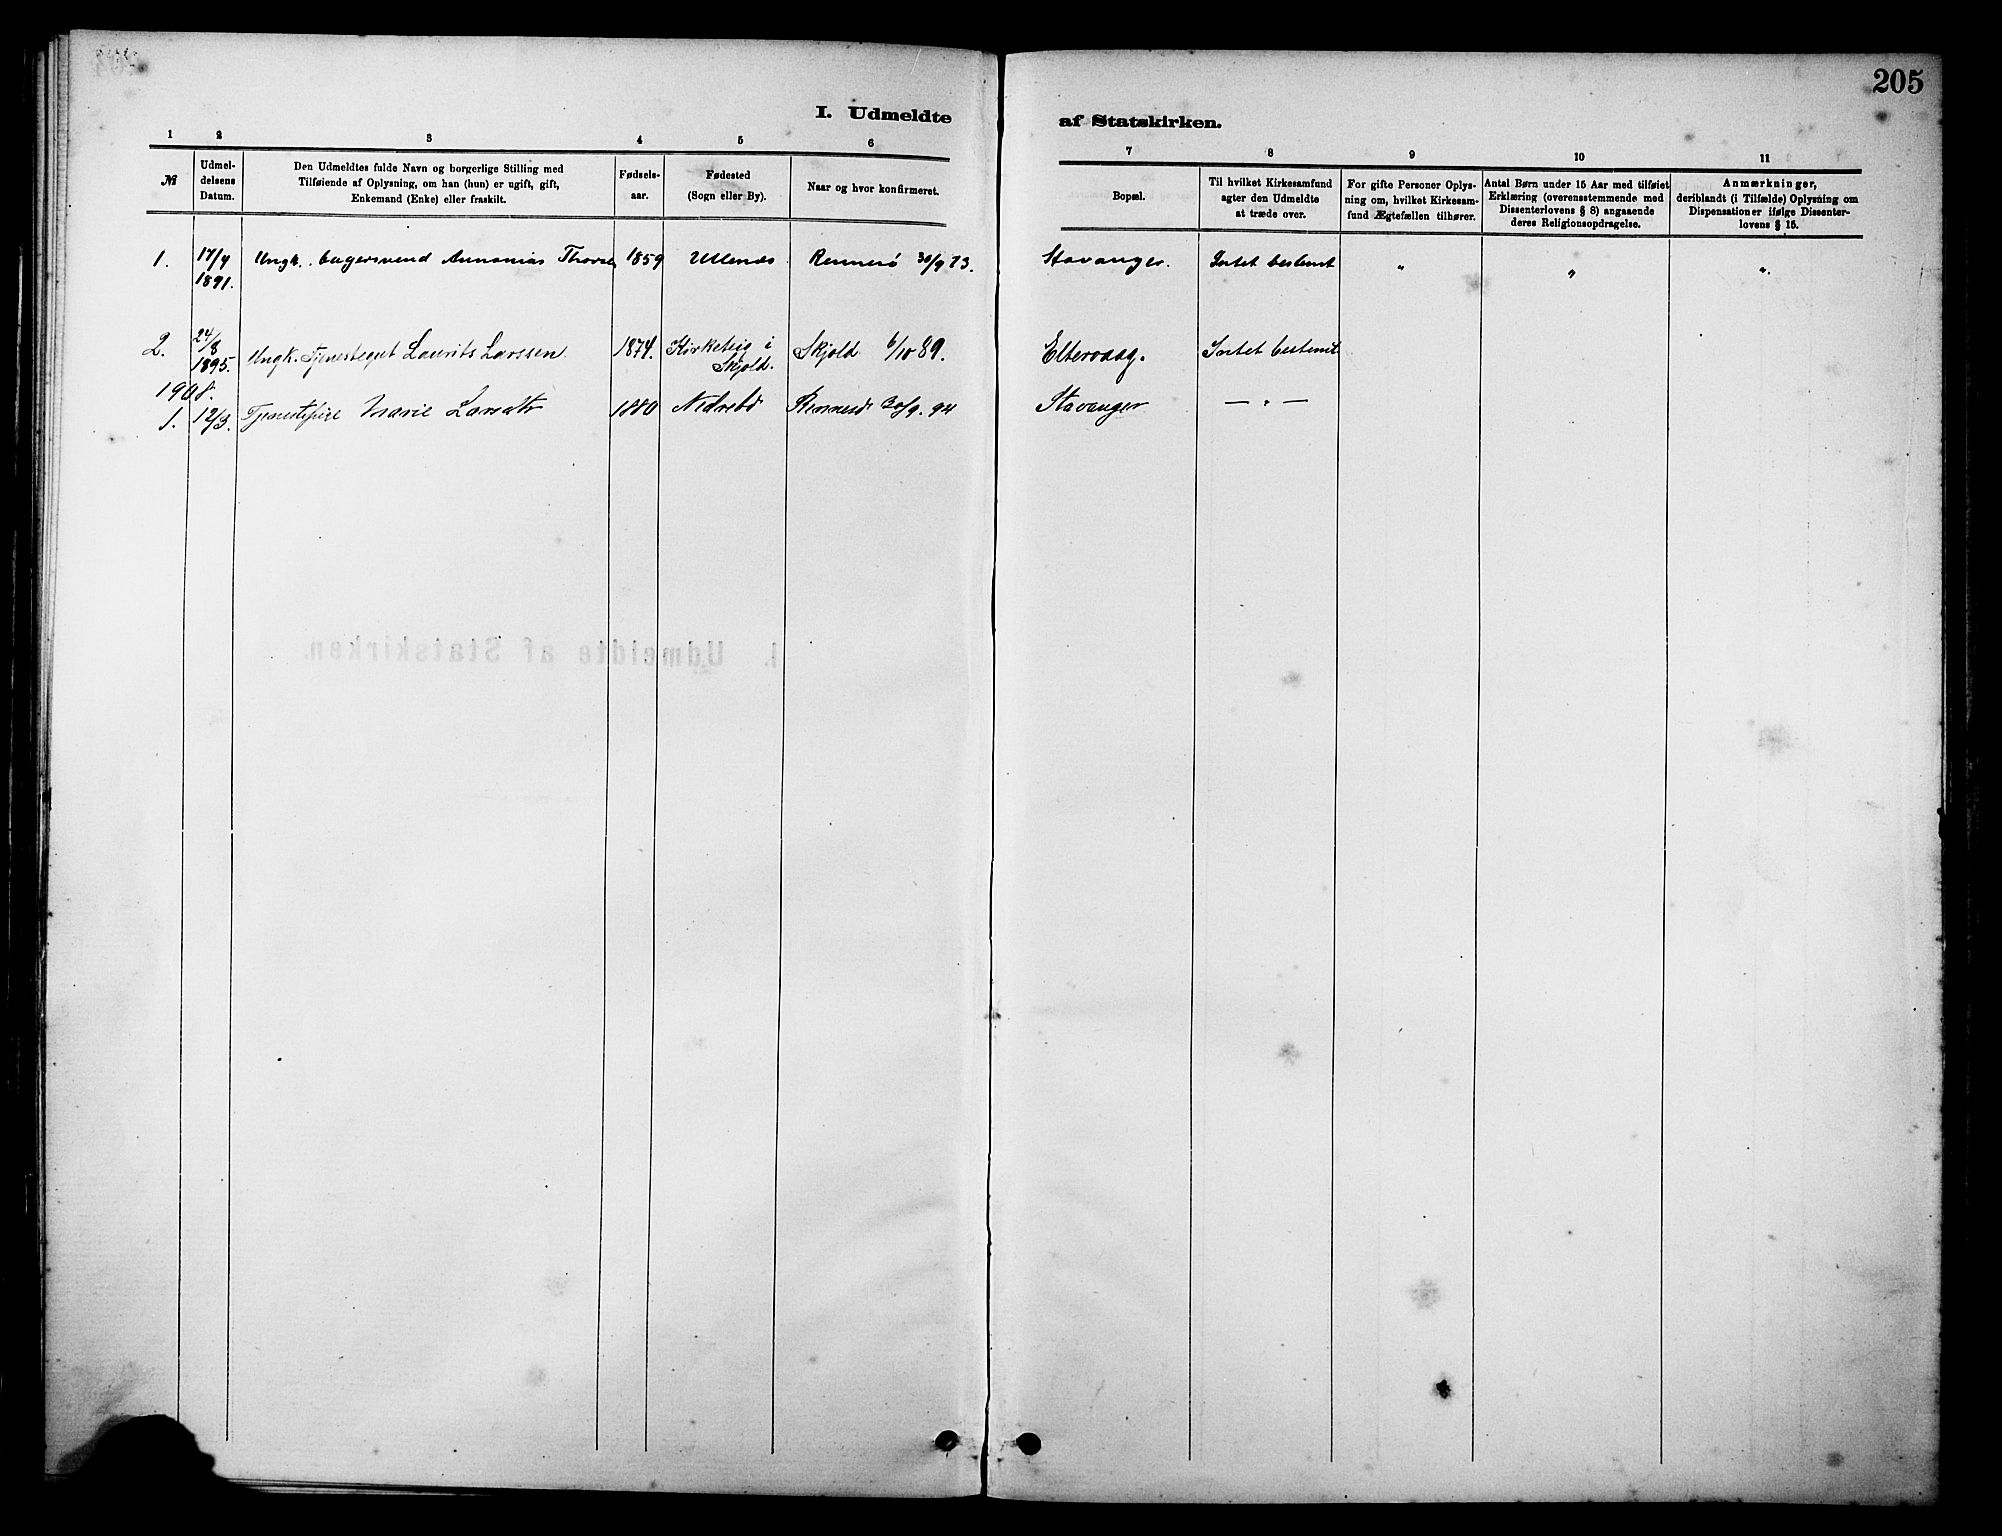 205
I. Udmeldte af Statskirken.
1 2 3 4 5 6 7 8 9 10 11
№
Udmel-
delsens
Datum.
Den Udmeldtes fulde Navn og borgerlige Stilling med
Tilføiende af Oplysning, om han (hun) er ugift, gift,
Enkemand (Enke) eller fraskilt.
Fødsels-
aar.
Fødested
(Sogn eller By).
Naar og hvor konfirmeret.
Bopæl.
Til hvilket Kirkesamfund
agter den Udmeldte
at træde over.
For gifte Personer Oplys-
ning om, hvilket Kirkesam-
fund Ægtefællen tilhører.
Antal Børn under 15 Aar med tilføiet
Erklæring (overensstemmende med
Dissenterlovens § 8) angaaende
deres Religionsopdragelse.
Anmærkninger,
deriblandt (i Tilfælde) Oplysning om
Dispensationer ifølge Dissenter-
lovens § 15.
1. 17/4 1891. Ungk. bagersvend Annanias Thorse 1859 Utienæs Rennesø 30/9 73. Stavanger. Intet bestemt " " ".
2. 24/8 1895. Ungk. Tjenestegut Laurits Larssen 1874. Kirketeig i Skjold. Skjold 6/10 89. Eltervaag. Intet bestemt
1908.
1. 12/3. Tjenestepige Marie Larsdtr 1880 Nedrebø Rennesø 30/9. 94 Stavanger — " —
I. Udmeldte af Statskirken.